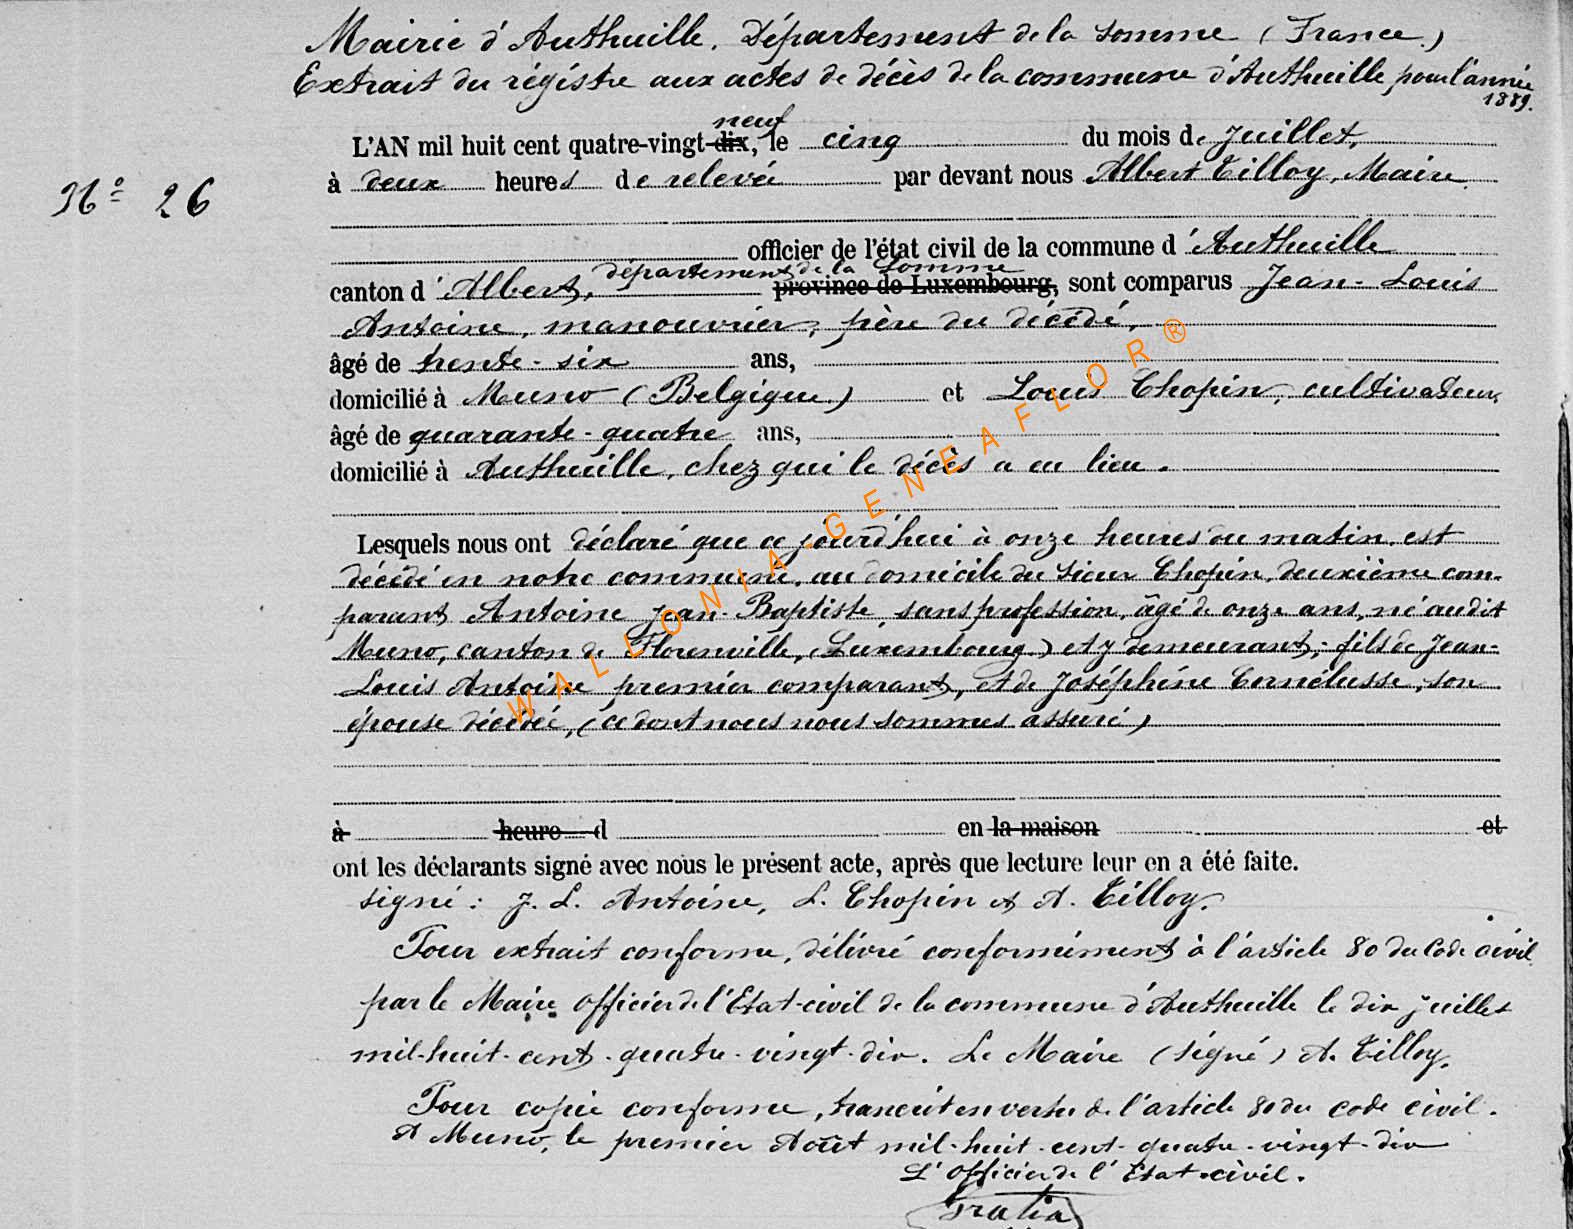 Mairie d'Authuille. Département de la Somme (France.)
Extrait du régistre aux actes de décès de la commune d'Authuille pour l'année
1889.
neuf
L'AN mil huit cent quatre-vingt-dix, le cinq du mois de Juillet,
à deux heures de relevée par devant nous Albert Tilloy, Maire
Nº 26
officier de l'état civil de la commune d'Authuille
département de la Somme
canton d'Albert, province de Luxembourg, sont comparus Jean-Louis
Antoine, manouvrier, père du décédé,
âgé de trente-six ans,
domicilié à Muno (Belgique.) et Louis Chopin, cultivateur,
âgé de quarante-quatre ans,
domicilié à Authuille, chez qui le décès a eu lieu.
Lesquels nous ont déclaré que ce jourd'hui à onze heures du matin, est
décédé en notre commune, au domicile du sieur Chopin, deuxième com-
parant, Antoine Jean-Baptiste, sans profession, âgé de onze ans, né audit
Muno, canton de Florenville, (Luxembourg.) et y demeurant, fils de Jean-
Louis Antoine premier comparant, et de Joséphine Cornélusse, son
épouse décédée, (ce dont nous nous sommes assuré)
à heure d en la maison et
ont les déclarants signé avec nous le présent acte, après que lecture leur en a été faite.
signé: J. L. Antoine, L. Chopin et A. Tilloy.
Pour extrait conforme, délivré conformément à l'article 80 du Code civil
par le Maire officier de l'Etat-civil de la commune d'Authuille le dix juillet
mil-huit-cent-quatre-vingt-dix. Le Maire (signé) A. Tilloy.
Pour copie conforme, transcrit en vertu de l'article 80 du code civil.
A Muno, le premier Août mil-huit-cent-quatre-vingt-dix
L'officier de l'Etat-civil.
WALLONIA-GENEAFLOR®